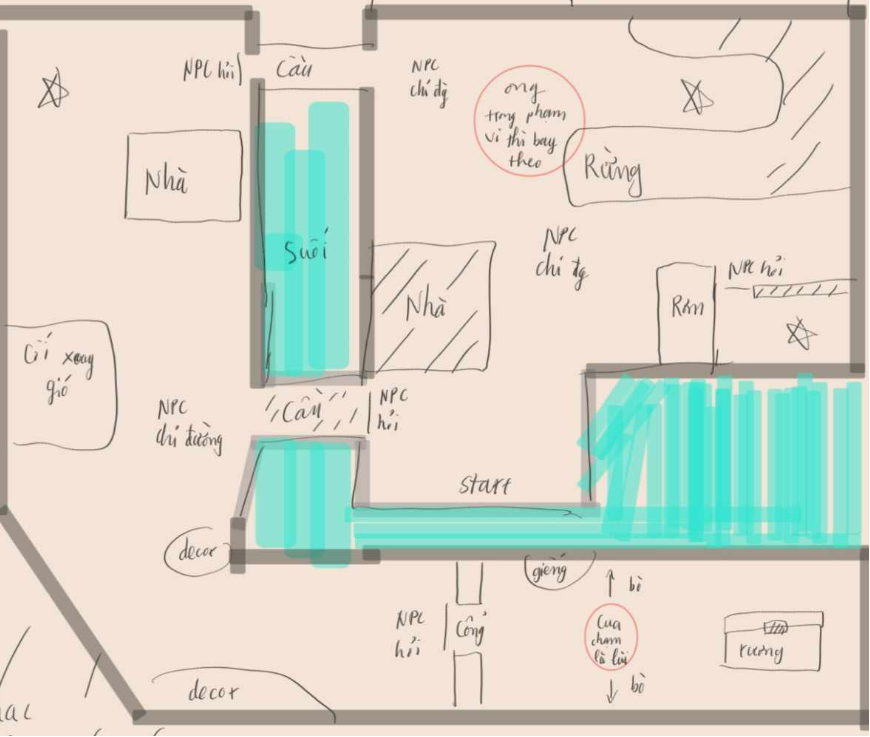 NPC hỏi
Cầu
NPC
chỉ đg
ong
trong phạm
vi thì bay
theo
Nhà
Rừng
Suối
NPC
chỉ đg
NPC hỏi
Nhà
Rơm
Cối xoay
gió
NPC
chỉ đường
Cầu
NPC
hỏi
start
decor
giếng
bò
NPC
hỏi
Cổng
Cua
chạm
là lùi
rương
bò
decor